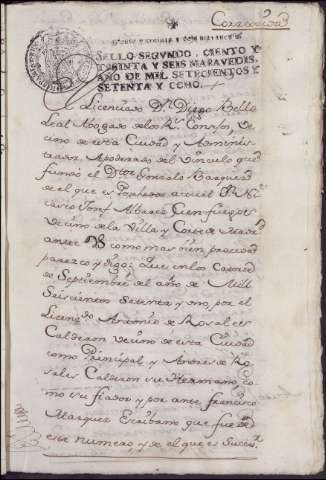 Corregidor
SELLO SEGVNDO, CIENTO Y
TREINTA Y SEIS MARAVEDIS,
AÑO DE MIL SETECIENTOS Y
SETENTA Y OCHO.
El Licenciado Dn. Diego Bello
Leal Abogado de los Rs. Consejos, Ve
cino de esta Ciudad y Adminis
trador, Apoderado del Vinculo que
fundó el Dtor Gonzalo Marquez
de el que es Poseedor actual Dn.
Joseph Albarez Cienfuegos
Vecino de la Villa y Corte de Madrid
ante V como mas bien proceda
parezco y digo: Que en los
de Septiembre del año de Mill
Seiscientos Setenta y uno, por el
Licendo. Antonio de Rosales
Calderon Vecino de esta Ciudad
como Principal y Andres de Ro
sales Calderon su Hermano, co
mo su fiador y por ante Francisco
Marquez Escribano que fue de
este numero, y de el que es Succesr.